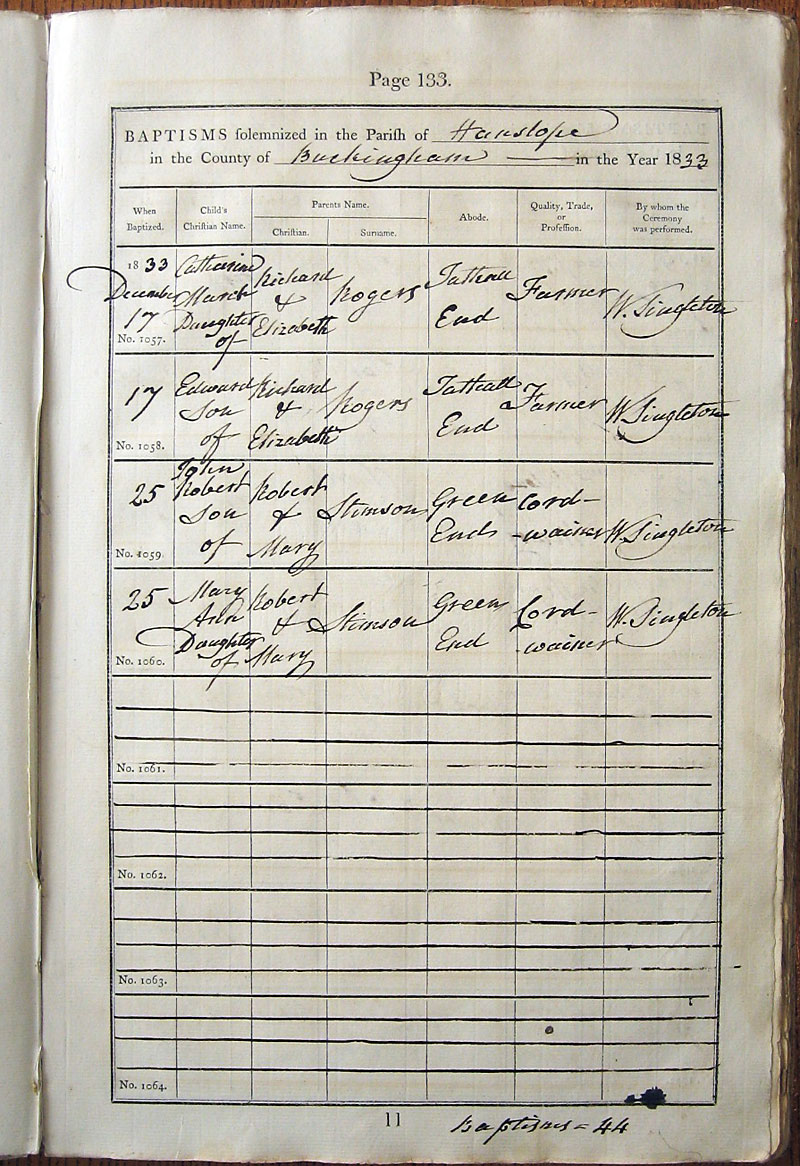 Page 133.
BAPTISMS solemnized in the Parish of Hanslope
in the County of Buckingham in the Year 1833
When Baptized. Child's Christian Name. Parents Name. Abode. Quality, Trade, or Profession. By whom the Ceremony was performed.
Christian. Surname.
1833
December
17
No. 1057.
Catharine
March
Daughter
of
Richard
&
Elizabeth
Rogers
Tathall
End
Farmer
W. Singleton
17
No. 1058.
Edward
Son
of
Richard
&
Elizabeth
Rogers
Tathall
End
Farmer
W. Singleton
25
No. 1059.
John
Robert
Son
of
Robert
&
Mary
Stimson
Green
End
Cord-
-wainer
W. Singleton
25
No. 1060.
Mary
Ann
Daughter
of
Robert
&
Mary
Stimson
Green
End
Cord-
-wainer
W. Singleton
No. 1061.
No. 1062.
No. 1063.
No. 1064.
11
Baptisms = 44